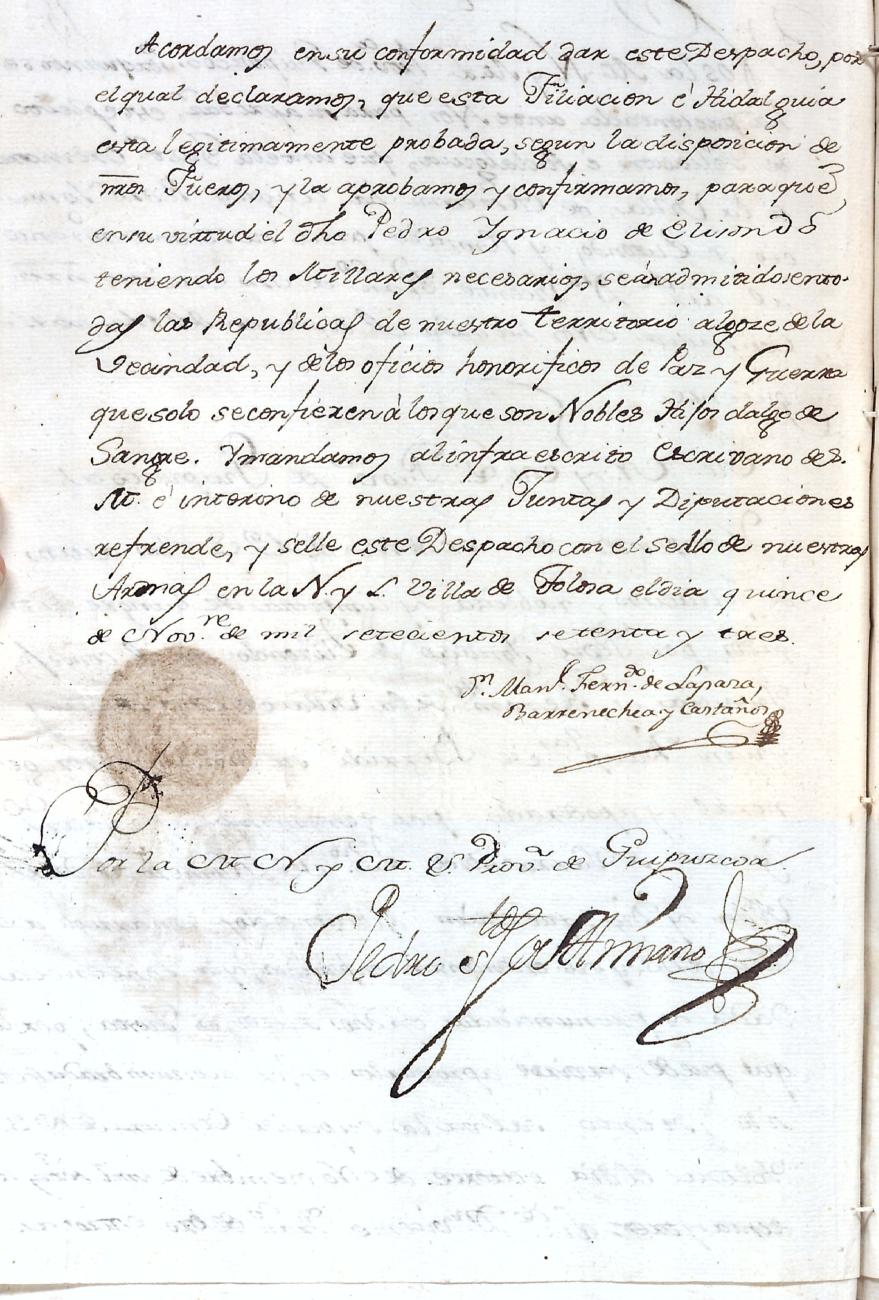 Acordamos en su conformidad dar este Despacho, por
el qual declaramos, que esta Filiacion é Hidalguia
esta legitimamente probada, segun la disposicion de
nros Fueros, y la aprobamos y confirmamos, para que
en su virtud el dho Pedro Ygnacio de Elisondo
teniendo los Millares necesarios, sea admitido en to-
das las Republicas de nuestro territorio al goze de la
Vecindad, y de los oficios honorificos de Paz y Guerra
que solo se confieren à los que son Nobles Hijos dalgo de
Sangre. Y mandamos al infraescrito Escrivano de S.
M. é interino de nuestras Juntas y Diputaciones
refrende, y selle este Despacho con el sello de nuestras
Armas en la N. y L. Villa de Tolosa el dia quince
de Nov.re de mil setecientos setenta y tres.
Dn. Manl. Fern.do de Lapaza,
Barrenechea y Castaños
Por la M. N. y M. L. Prov.a de Guipuzcoa
Pedro